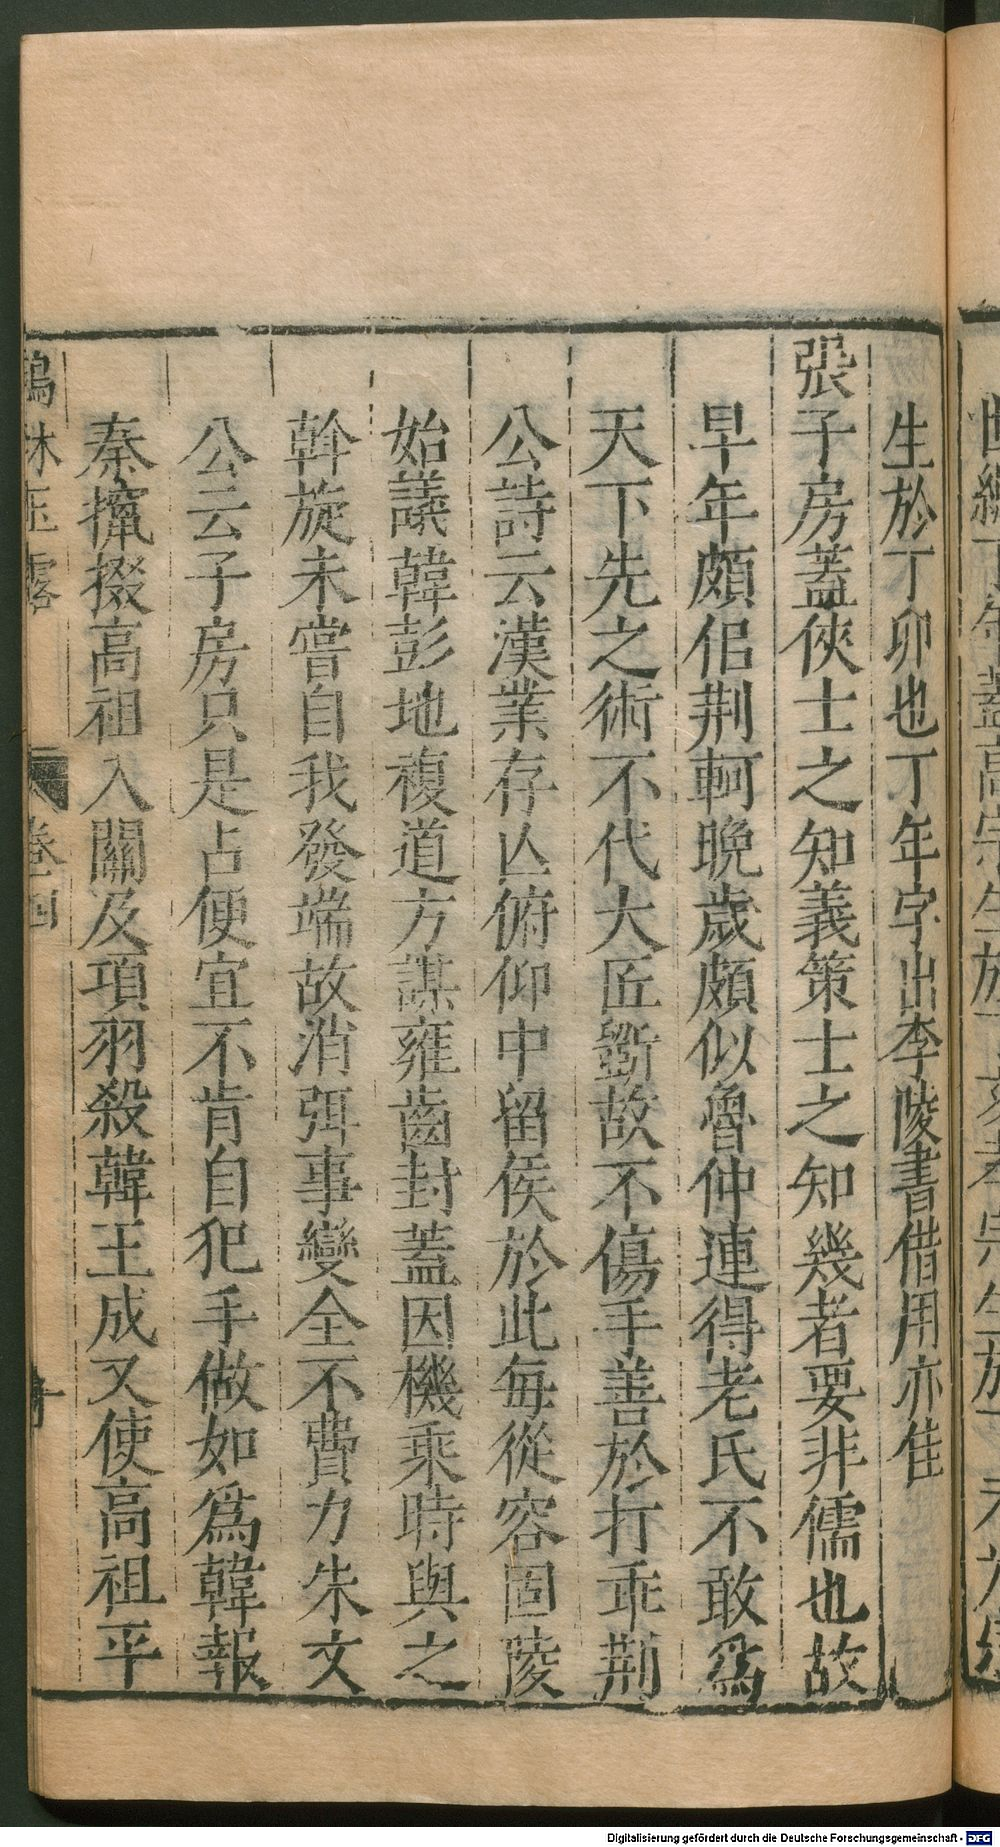 生於丁卯也丁年字出李陵書借用亦佳
張子房蓋俠士之知義策士之知幾者要非儒也故
早年頗似荆軻晚歲頗似魯仲連得老氏不敢爲
天下先之術不代大匠斵故不傷手善於打乖荆
公詩云漢業存亾俯仰中留侯於此每從容固陵
始議韓彭地複道方謀雍齒封蓋因機乘時與之
斡旋未嘗自我發端故消弭事變全不費力朱文
公云子房只是占便宜不肯自犯手做如爲韓報
秦攛掇高祖入關及項羽殺韓王成又使高祖平
鶴林玉露
卷四
Digitalisierung gefördert durch die Deutsche Forschungsgemeinschaft - DFG